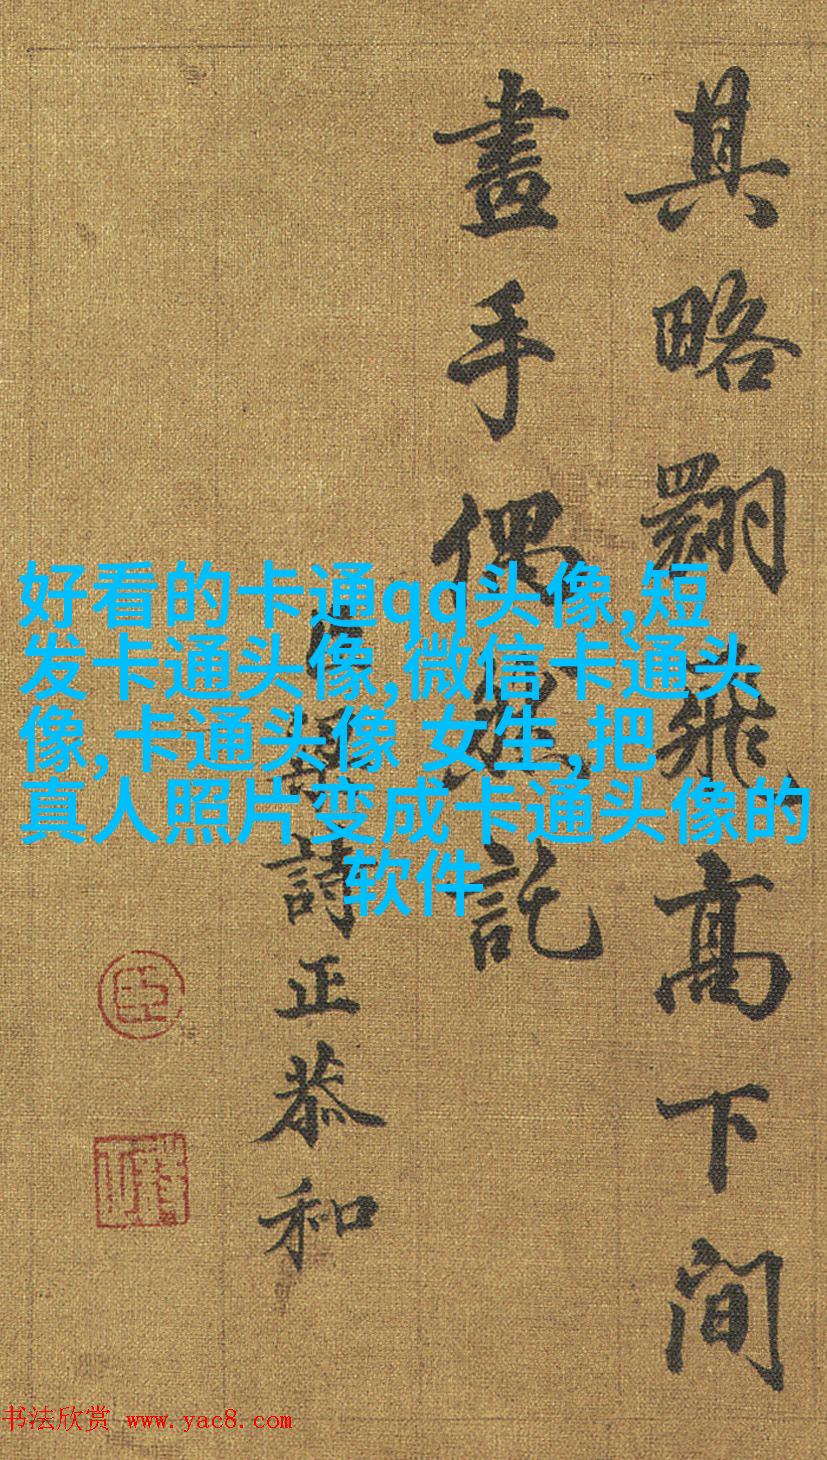 其略翾飛高下間
畫手偶然託
詩正恭和
臣
好看的卡通qq头像,短
发卡通头像,微信卡通头
像,卡通头像 女生,把
真人照片变成卡通头像的
软件
书法欣赏 www.yac8.com